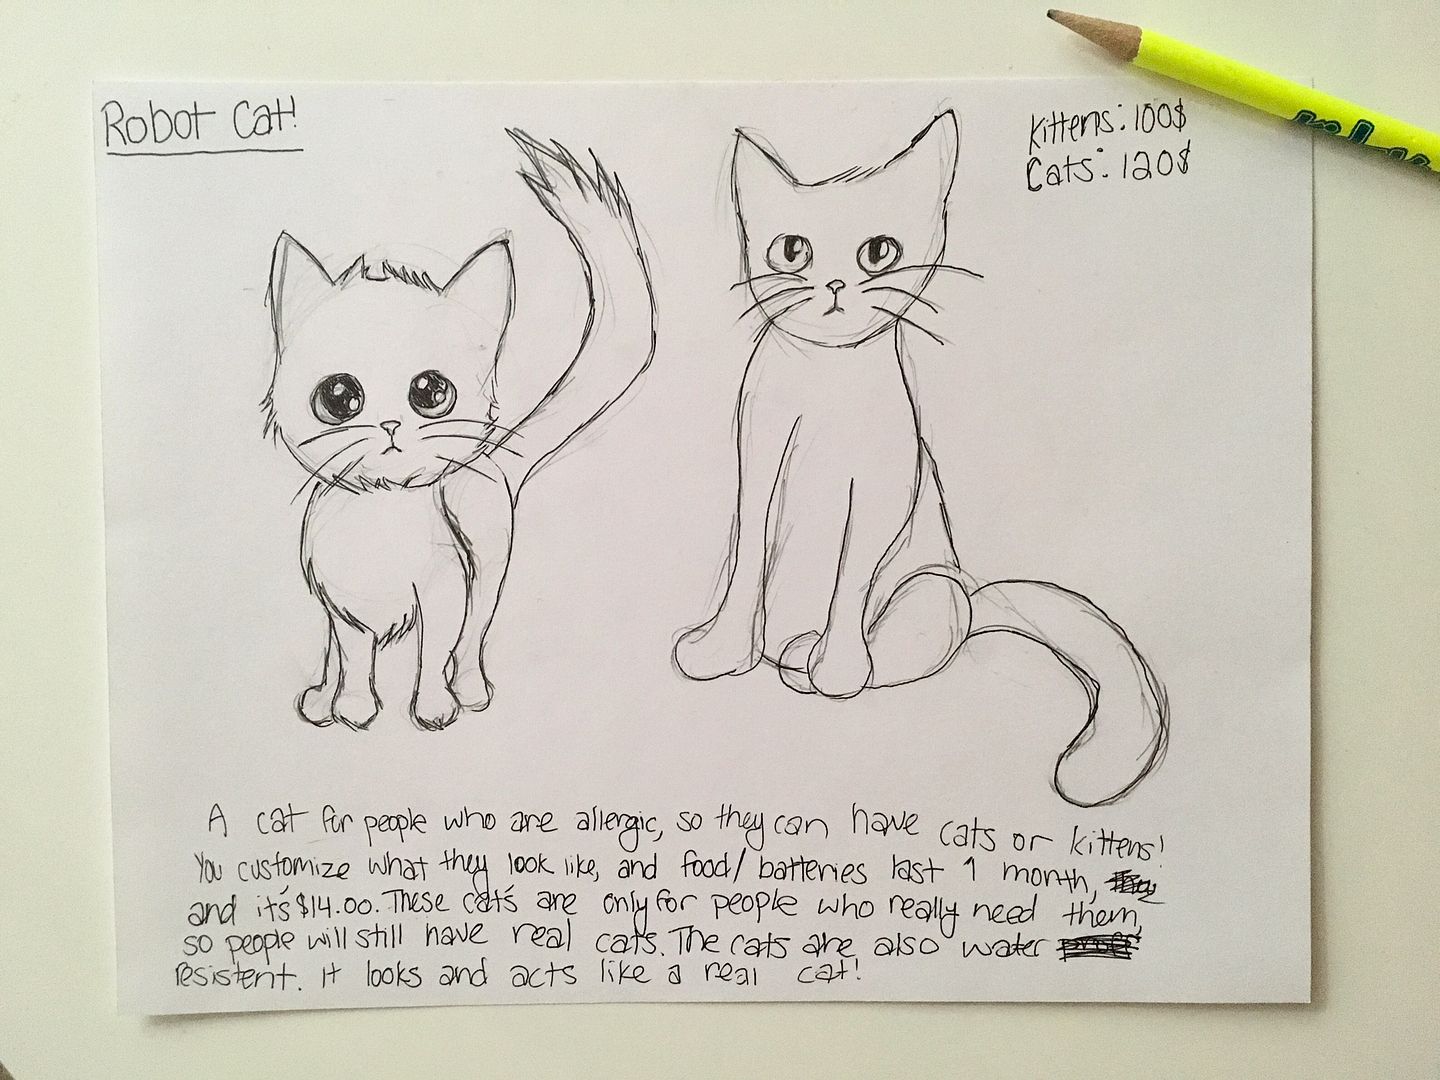 Robot Cat!
Kittens: 100$
Cats: 120$
A cat for people who are allergic, so they can have cats or kittens!
You customize what they look like, and food/batteries last 1 month,
and it's $14.00. These cat's are only for people who really need them,
so people will still have real cats. The cats are also water
resistent. It looks and acts like a real cat!